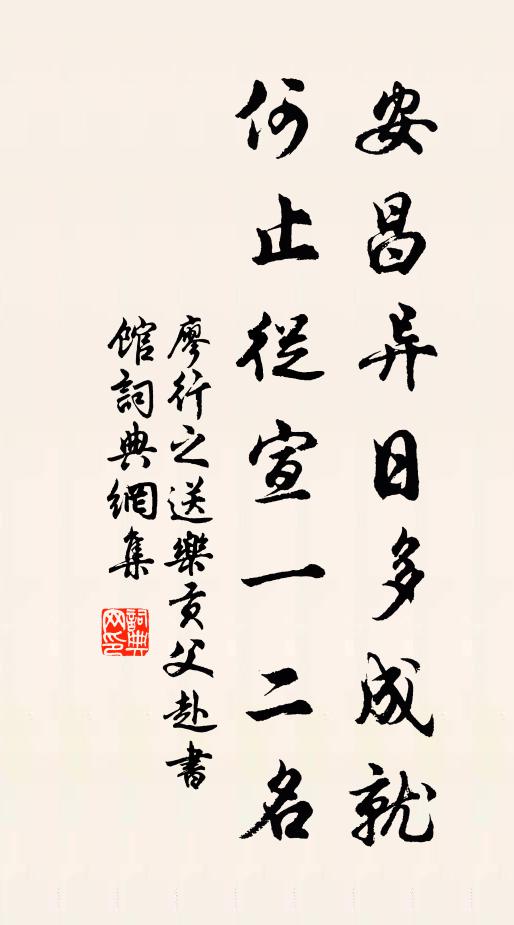 安昌异日多成就
何止從宣一二名
廖行之送樂貢父赴書
館詞典網集
詞典
网印